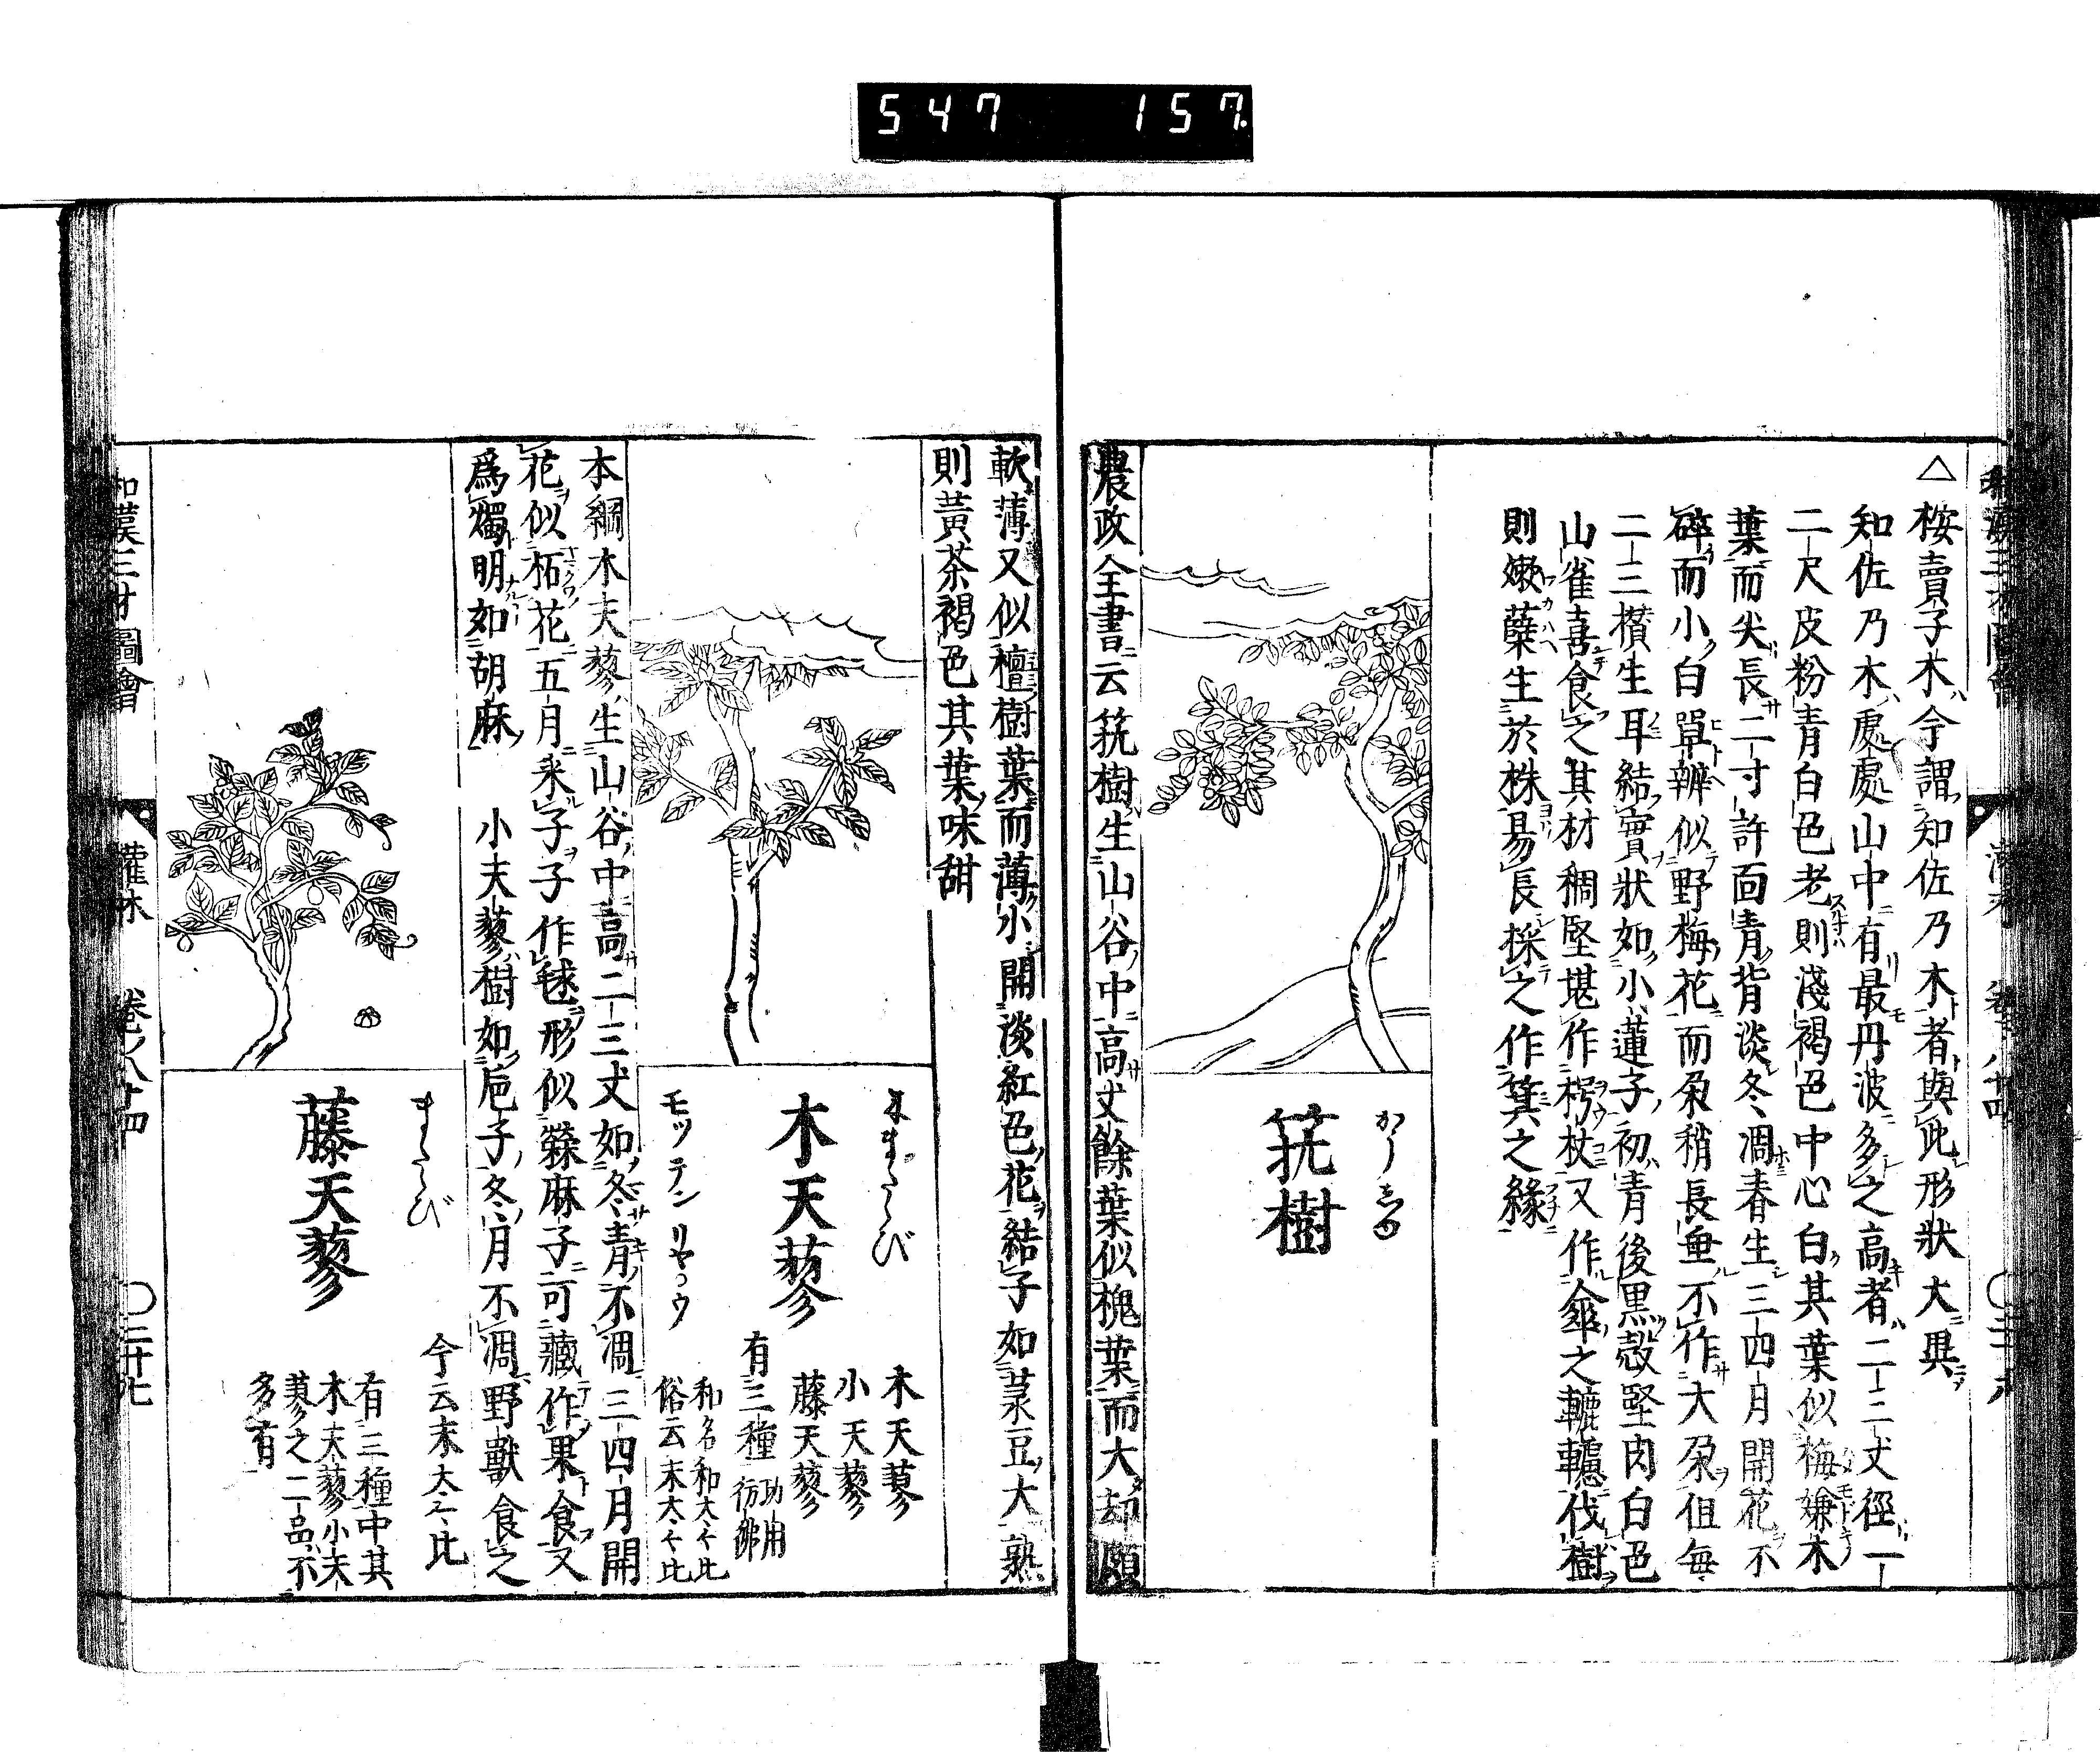 547 157
△桉賣子木今謂知佐乃木者與此形狀大異
知佐乃木處處山中有最丹波多之高者二三丈徑一
二尺皮粉青白色老則淺褐色中心白其葉似梅嫌木
葉而尖長二寸許面青背淡冬凋春生三四月開花不
碎而小白單辨似野梅花而朶稍長垂不作大朶但每
二三攅生耳結實狀如小蓮子初青後黒殻堅肉白色
山雀喜食之其材稠堅堪作枴杖又作傘之轆轤伐樹
則嫩蘖生於株易長採之作箕之縁
筅樹
農政全書云筅樹生山谷中高丈餘葉似槐葉而大却頗
軟薄又似檀樹葉而薄小開淡紅色花結子如菉豆大熟
則黃茶褐色其葉味甜
木またゝび
木天蓼
モツテンリヤ○ウ
木天蓼
小天蓼
藤天蓼
有三種功用彷彿
和名和太々比
俗云末太々比
本綱木天蓼生山谷中高二三丈如冬青不凋三四月開
花似柘花五月采子子作毬形似檾麻子可藏作果食又
爲燭明如胡麻 小天蓼樹如巵子冬月不凋野獸食之
またゝび
藤天蓼
今云末太々比
有三種中其
木天蓼小天
蓼之二品不
多有
和漢三才圖會 灌木 卷ノ八十四 〇二十七